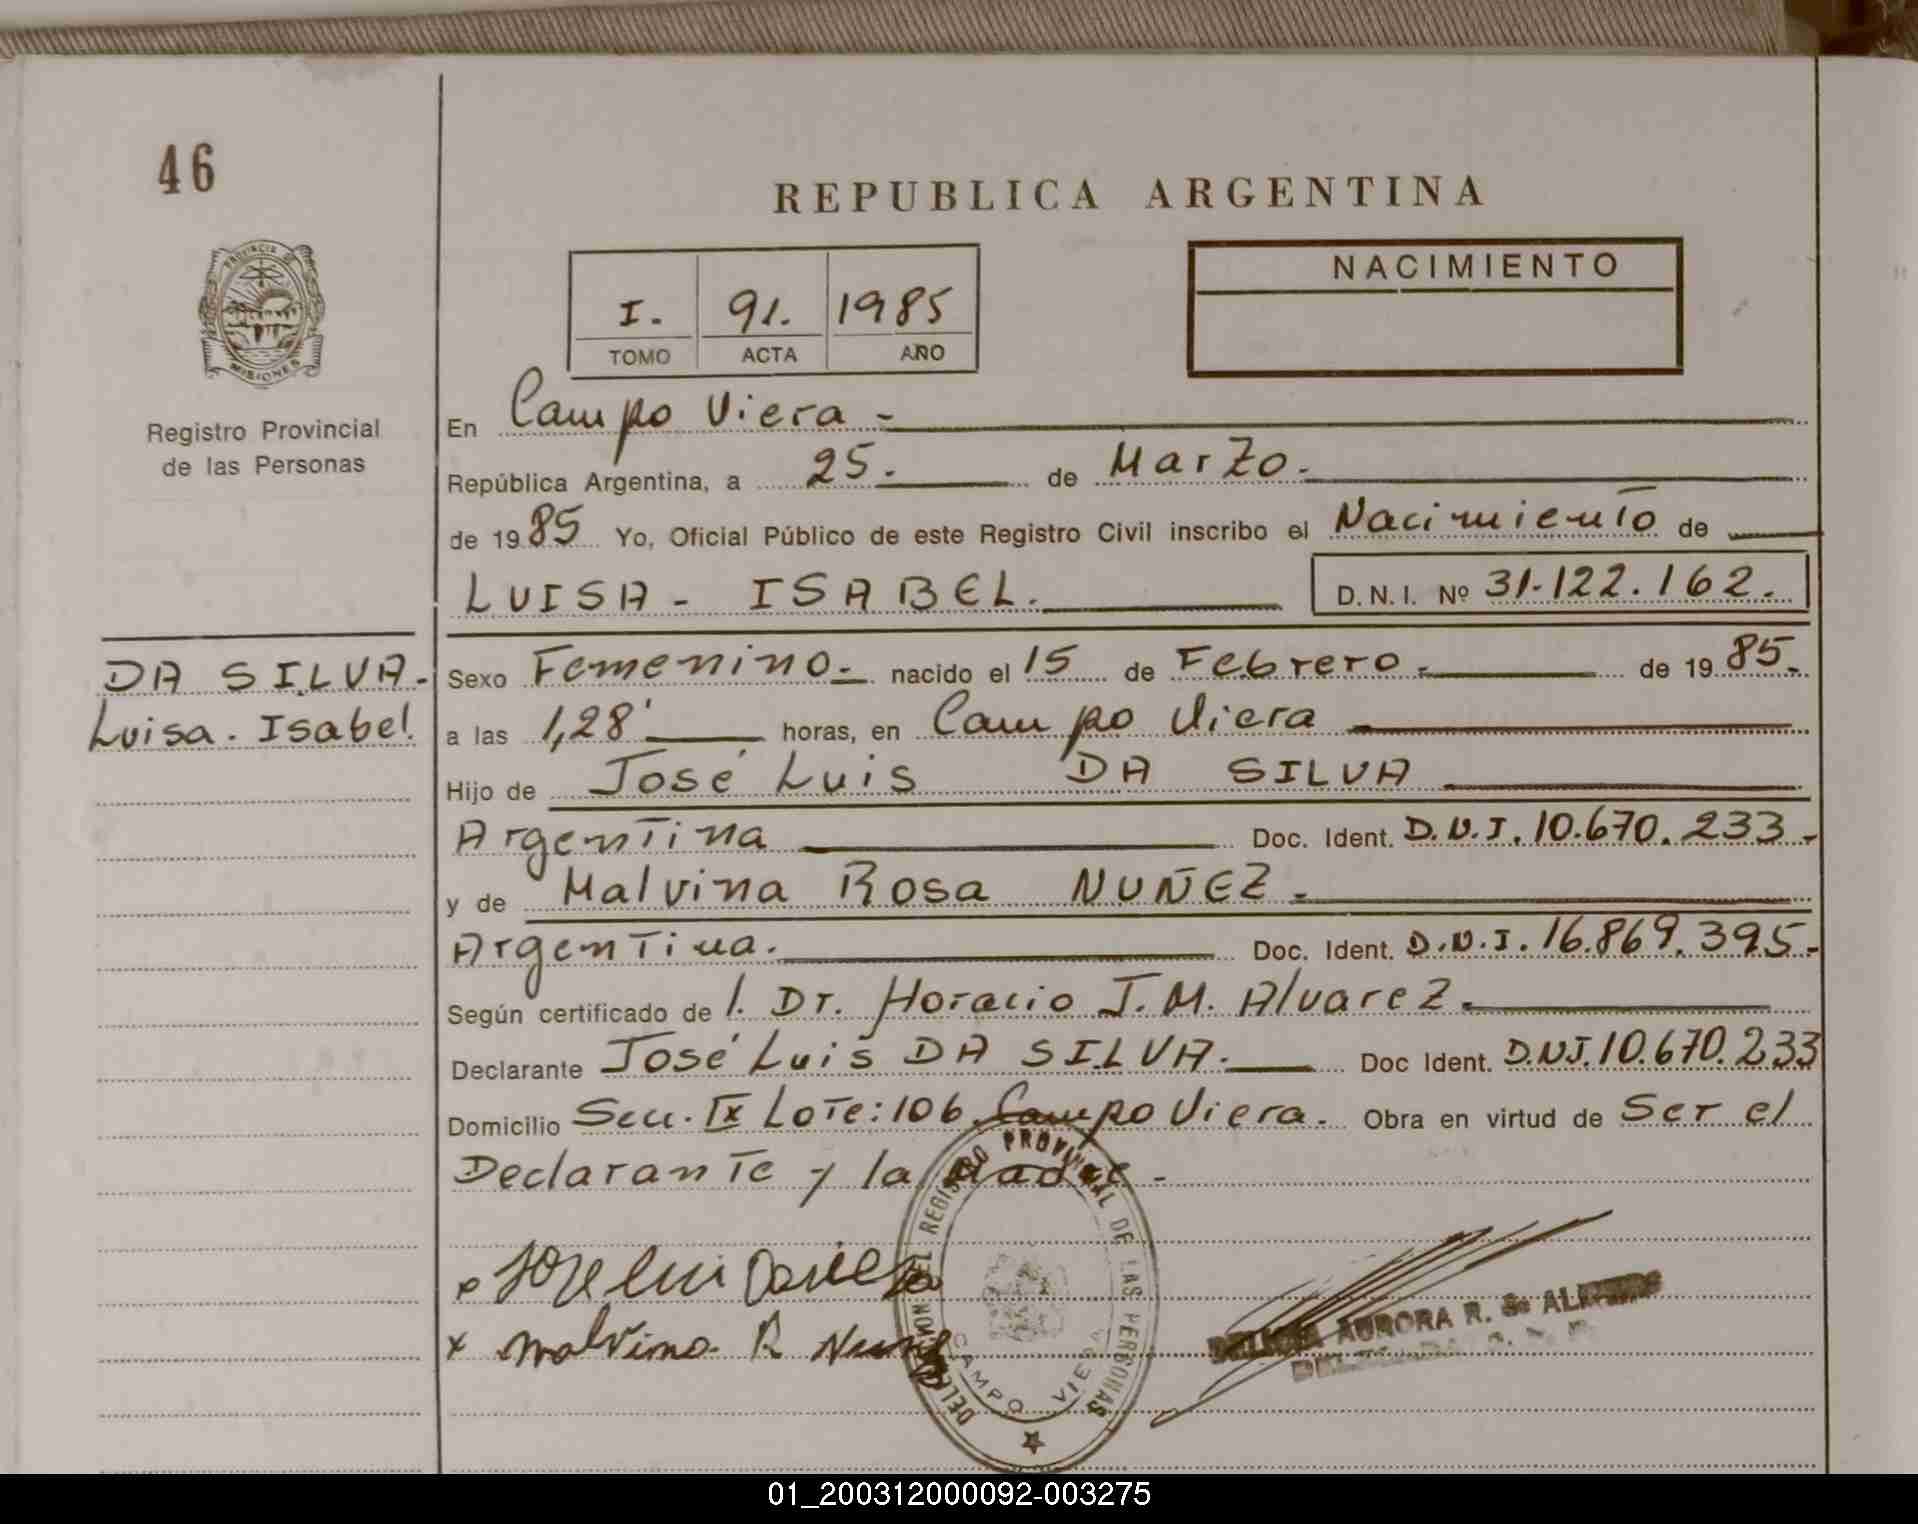 46
REPUBLICA ARGENTINA
PROVINCIA DE
MISIONES
Registro Provincial
de las Personas
I. 91. 1985
TOMO ACTA AÑO
NACIMIENTO
En Campo Viera -
República Argentina, a 25. de Marzo.
de 1985 Yo, Oficial Público de este Registro Civil inscribo el Nacimiento de
LUISA - ISABEL. D.N.I. Nº 31-122.162.
DA SILVA.-
Luisa. Isabel.
Sexo Femenino.- nacido el 15 de Febrero.- de 1985.-
a las 1,28' horas, en Campo Viera
Hijo de José Luis DA SILVA
Argentina Doc. Ident. D.N.I. 10.670.233.-
y de Malvina Rosa NUÑEZ.-
Argentina. Doc. Ident. D.N.I. 16.869.395.-
Según certificado de l. Dr. Horacio J.M. Alvarez.
Declarante José Luis DA SILVA. Doc Ident. D.N.I. 10.670.233
Domicilio Secc. IX Lote: 106. Campo Viera. Obra en virtud de Ser el
Declarante y la Madre.-
x Jose Luis
x Malvina R Nuñez
DELEGACION DEL REGISTRO PROVINCIAL DE LAS PERSONAS
CAMPO VIERA
AURORA R. de
01_200312000092-003275